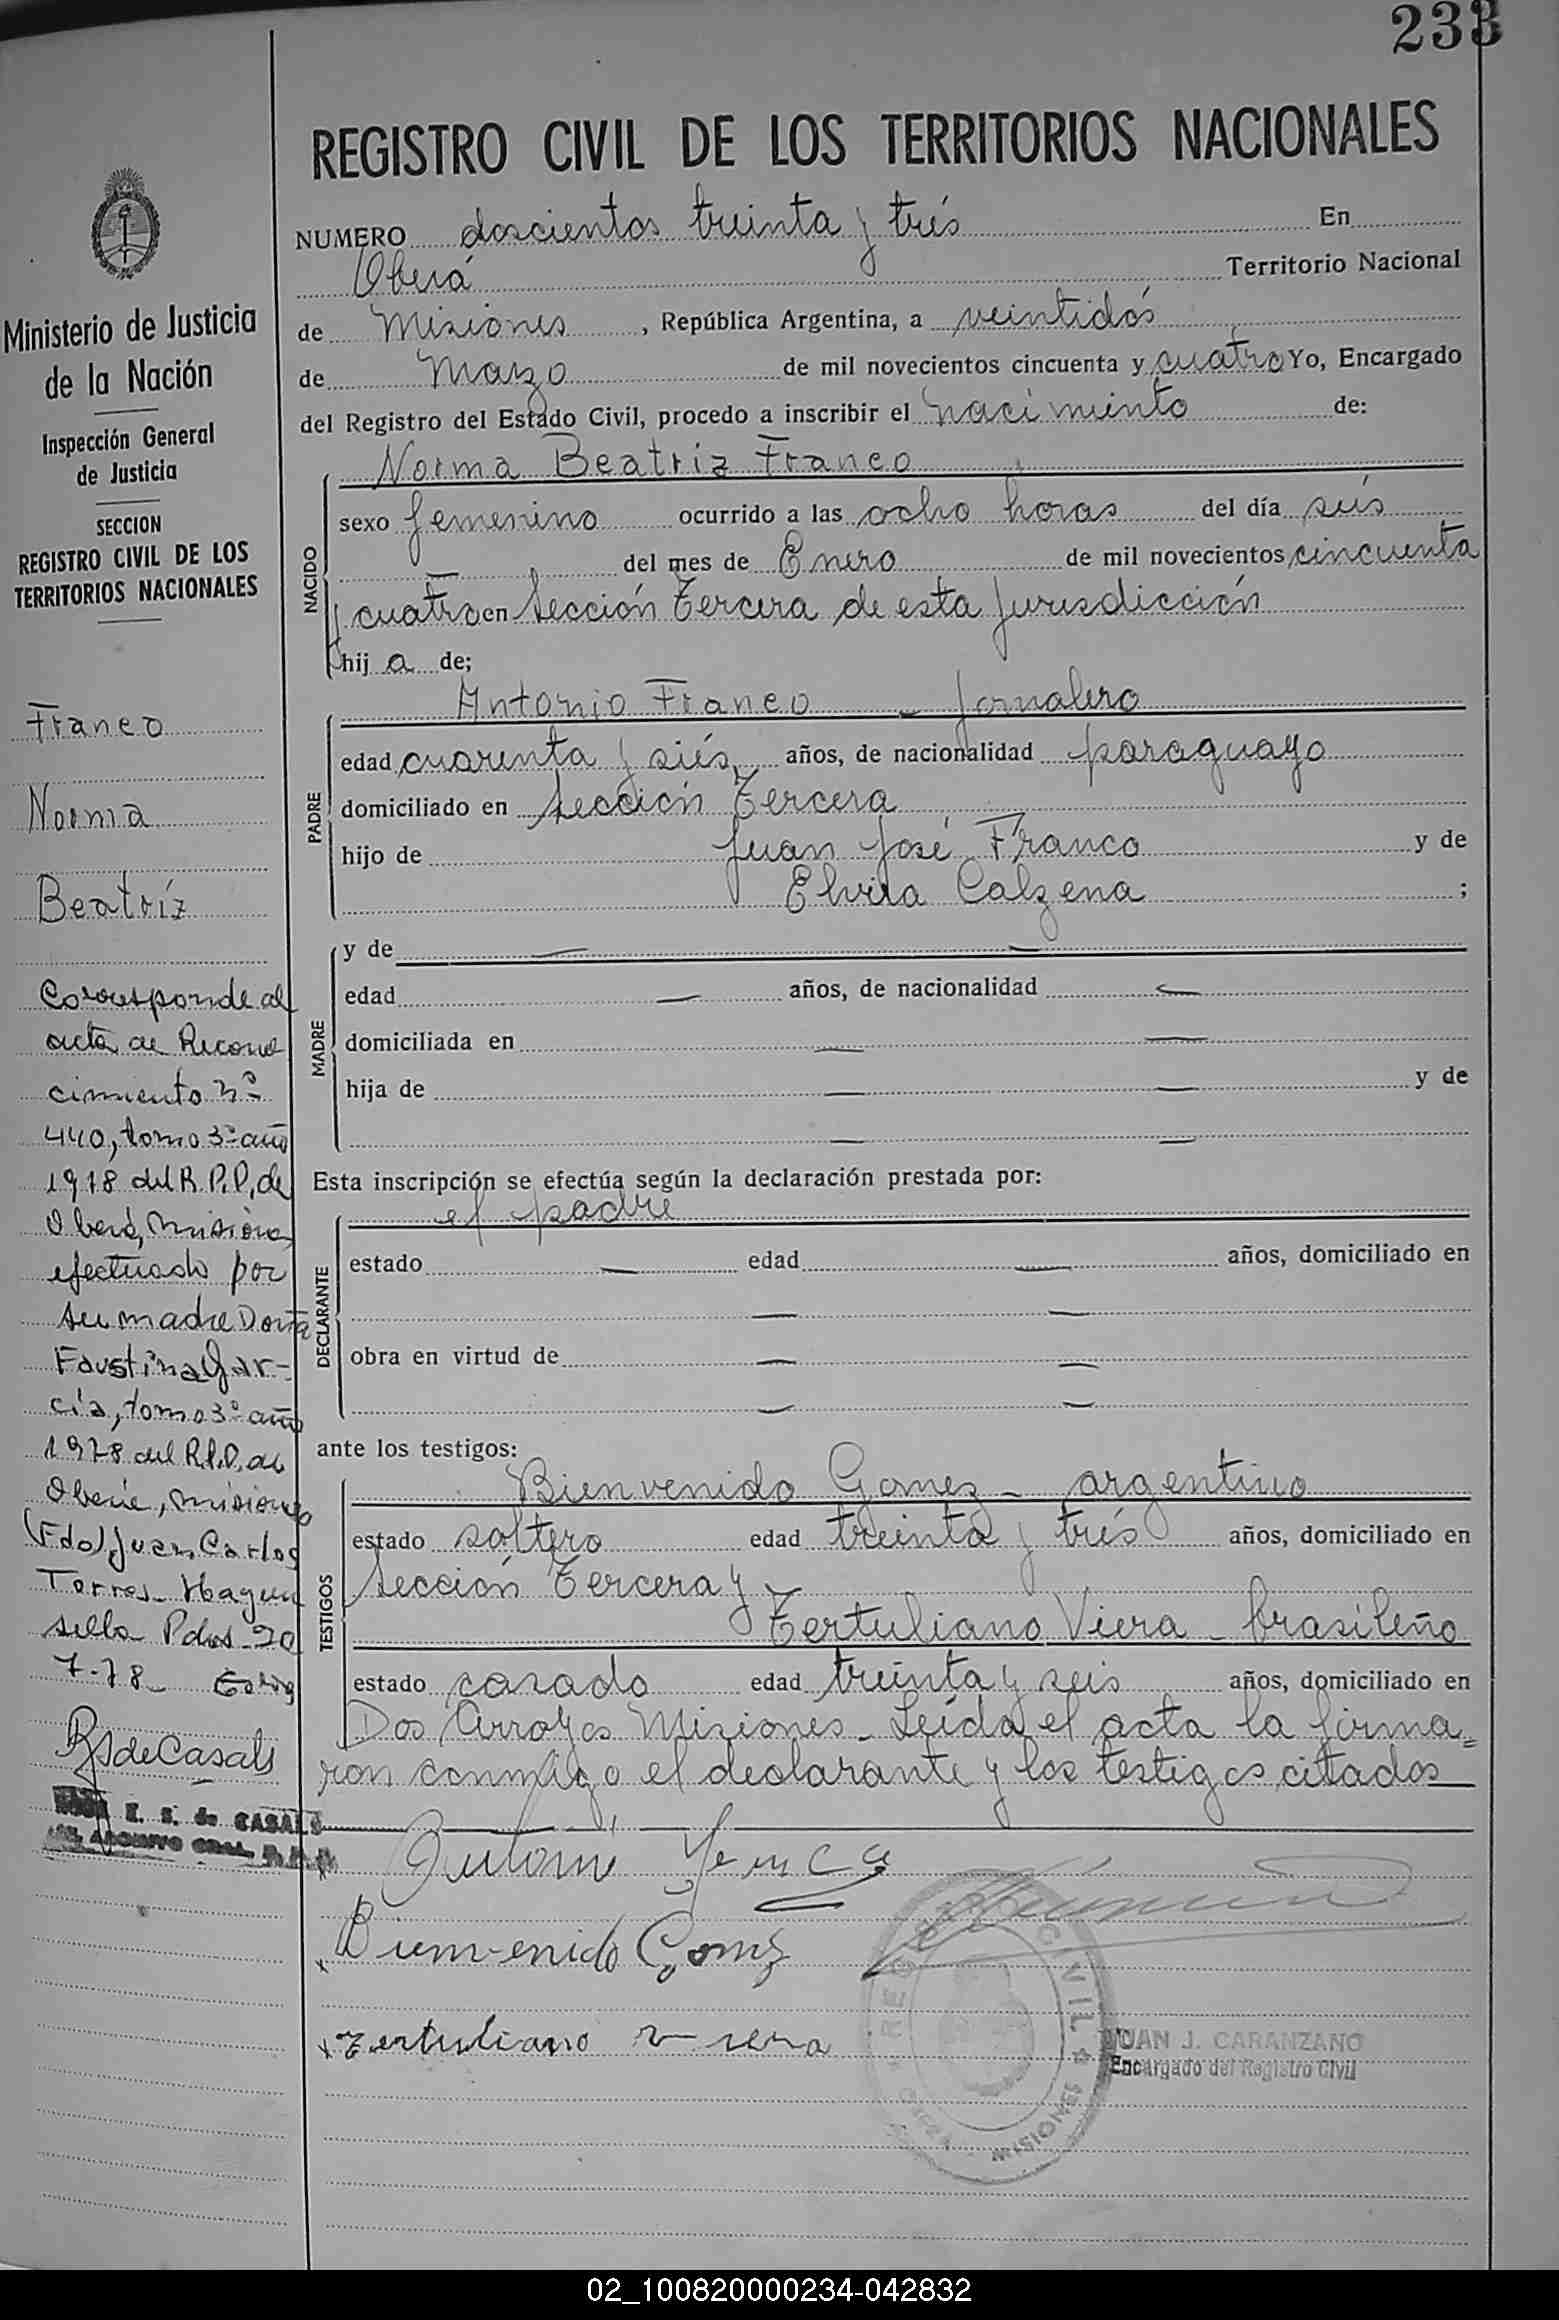 233
REGISTRO CIVIL DE LOS TERRITORIOS NACIONALES
NUMERO doscientos treinta y trés En
Oberá Territorio Nacional
de Misiones, República Argentina, a veintidós
de Marzo de mil novecientos cincuenta y cuatro Yo, Encargado
del Registro del Estado Civil, procedo a inscribir el nacimiento de:
Norma Beatriz Franco
NACIDO
sexo femenino ocurrido a las ocho horas del día seis
del mes de Enero de mil novecientos cincuenta
y cuatro en Sección Tercera de esta Jurisdicción
hij a de;
Antonio Franco - Jornalero
PADRE
edad cuarenta y siés, años, de nacionalidad paraguayo
domiciliado en Sección Tercera
hijo de Juan José Franco y de
Elvira Calzena ;
MADRE
y de
edad años, de nacionalidad
domiciliada en
hija de y de
Esta inscripción se efectúa según la declaración prestada por:
el padre
DECLARANTE
estado edad años, domiciliado en
obra en virtud de
ante los testigos:
Bienvenido Gomez - argentino
TESTIGOS
estado soltero edad treinta y trés años, domiciliado en
Sección Tercera y
Tertuliano Viera - brasileño
estado casado edad treinta y seis años, domiciliado en
Dos Arroyos Misiones - Leída el acta la firma=
ron conmigo el declarante y los testigos citados
Bienvenido Gomez
Tertuliano Viera
REG CIVIL
MISIONES
JUAN J. CARANZANO
Encargado del Registro Civil
Ministerio de Justicia
de la Nación
Inspección General
de Justicia
SECCION
REGISTRO CIVIL DE LOS
TERRITORIOS NACIONALES
Franco
Norma
Beatríz
Corresponde al
acta de Recono
cimiento nº
440, tomo 3º año
1978 del R.P.P. de
Oberá, Misiones
efectuado por
su madre Doña
Faustina Gar-
cía, tomo 3º año
1978 del R.P.P. de
Oberá, Misiones
(Fdo) Juan Carlos
Torres
sello Pdas 20
7-78-
RS de Casals
E. S. de CASALS
02_100820000234-042832